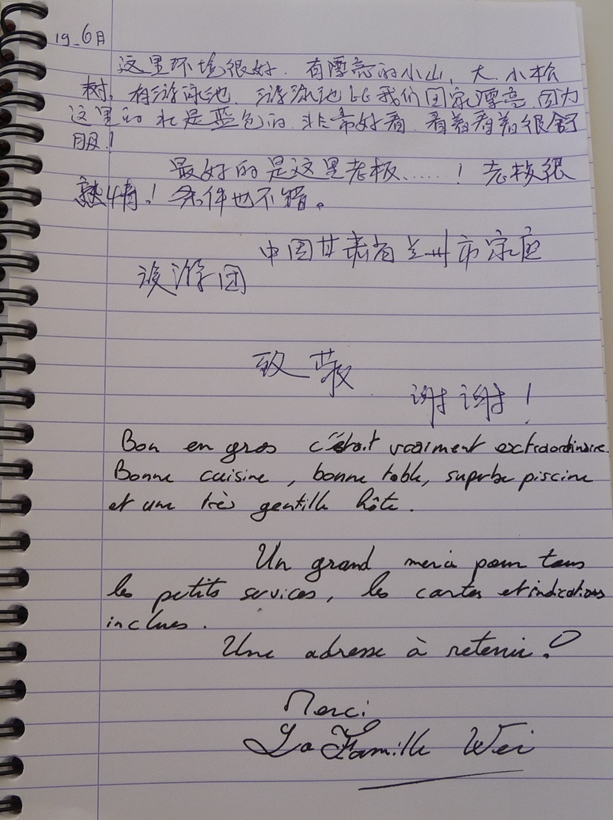 19.6月
这里环境很好. 有漂亮的小山, 大.小松
树, 有游泳池. 游泳池比我们国家漂亮. 因为
这里的水是蓝色的. 非常好看. 看着看着很舒
服!
最好的是这里老板......! 老板很
热情! 条件也不错。
中国甘肃省兰州市家庭
游团
致敬
谢谢!
Bon en gros c'était vraiment extraordinaire.
Bonne cuisine, bonne table, superbe piscine
et une très gentille hôte.
Un grand merci pour tous
les petits services, les cartes et indications
inclues.
Une adresse à retenir!
Merci
La Famille Wei